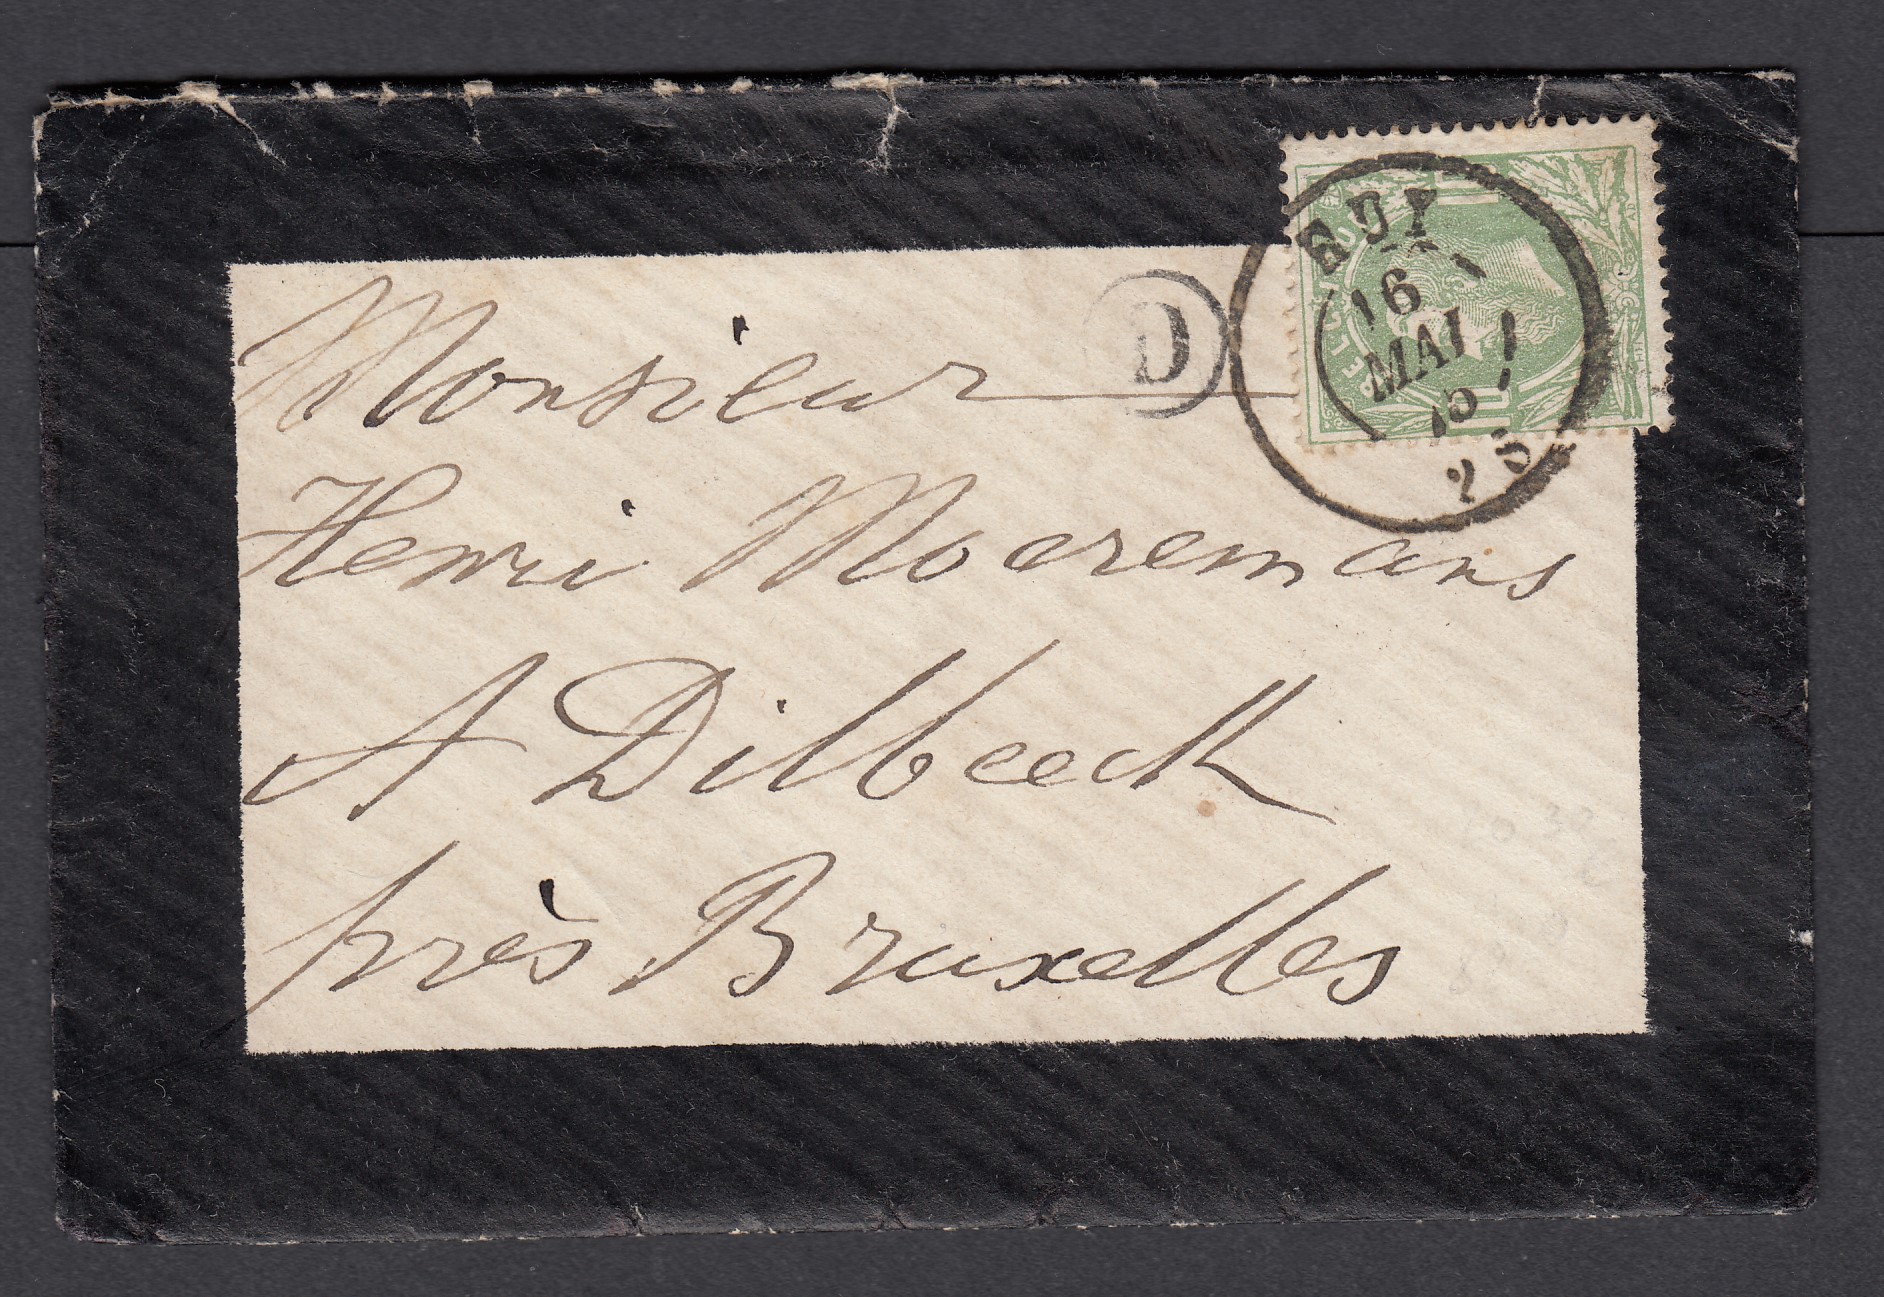 Monsieur
Henri Moeremans
A Dilbeeck
près Bruxelles
D
HUY
16
MAI
BELGIQUE